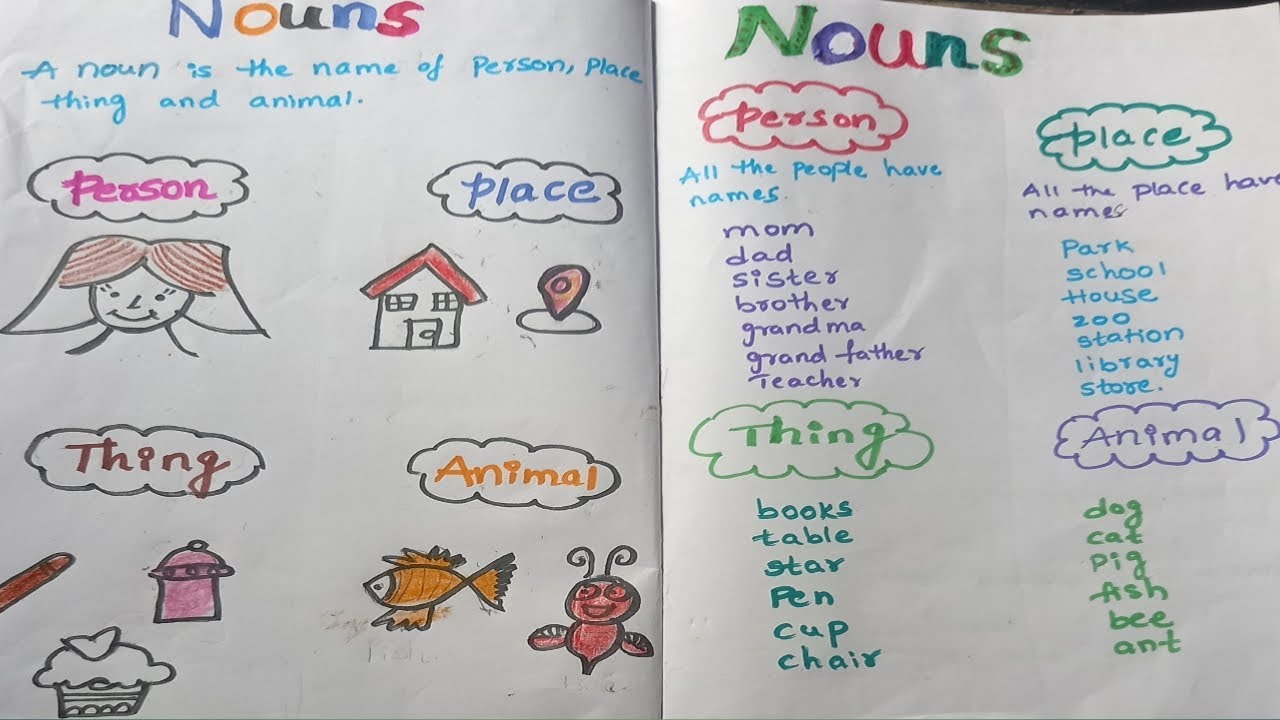 Nouns
A noun is the name of person, place
thing and animal.
Person
Place
Thing
Animal
Nouns
person
All the people have
names.
mom
dad
sister
brother
grandma
grand father
Teacher
place
All the place have
names
Park
school
House
zoo
station
library
store.
Thing
books
table
star
Pen
cup
chair
Animal
dog
cat
pig
fish
bee
ant